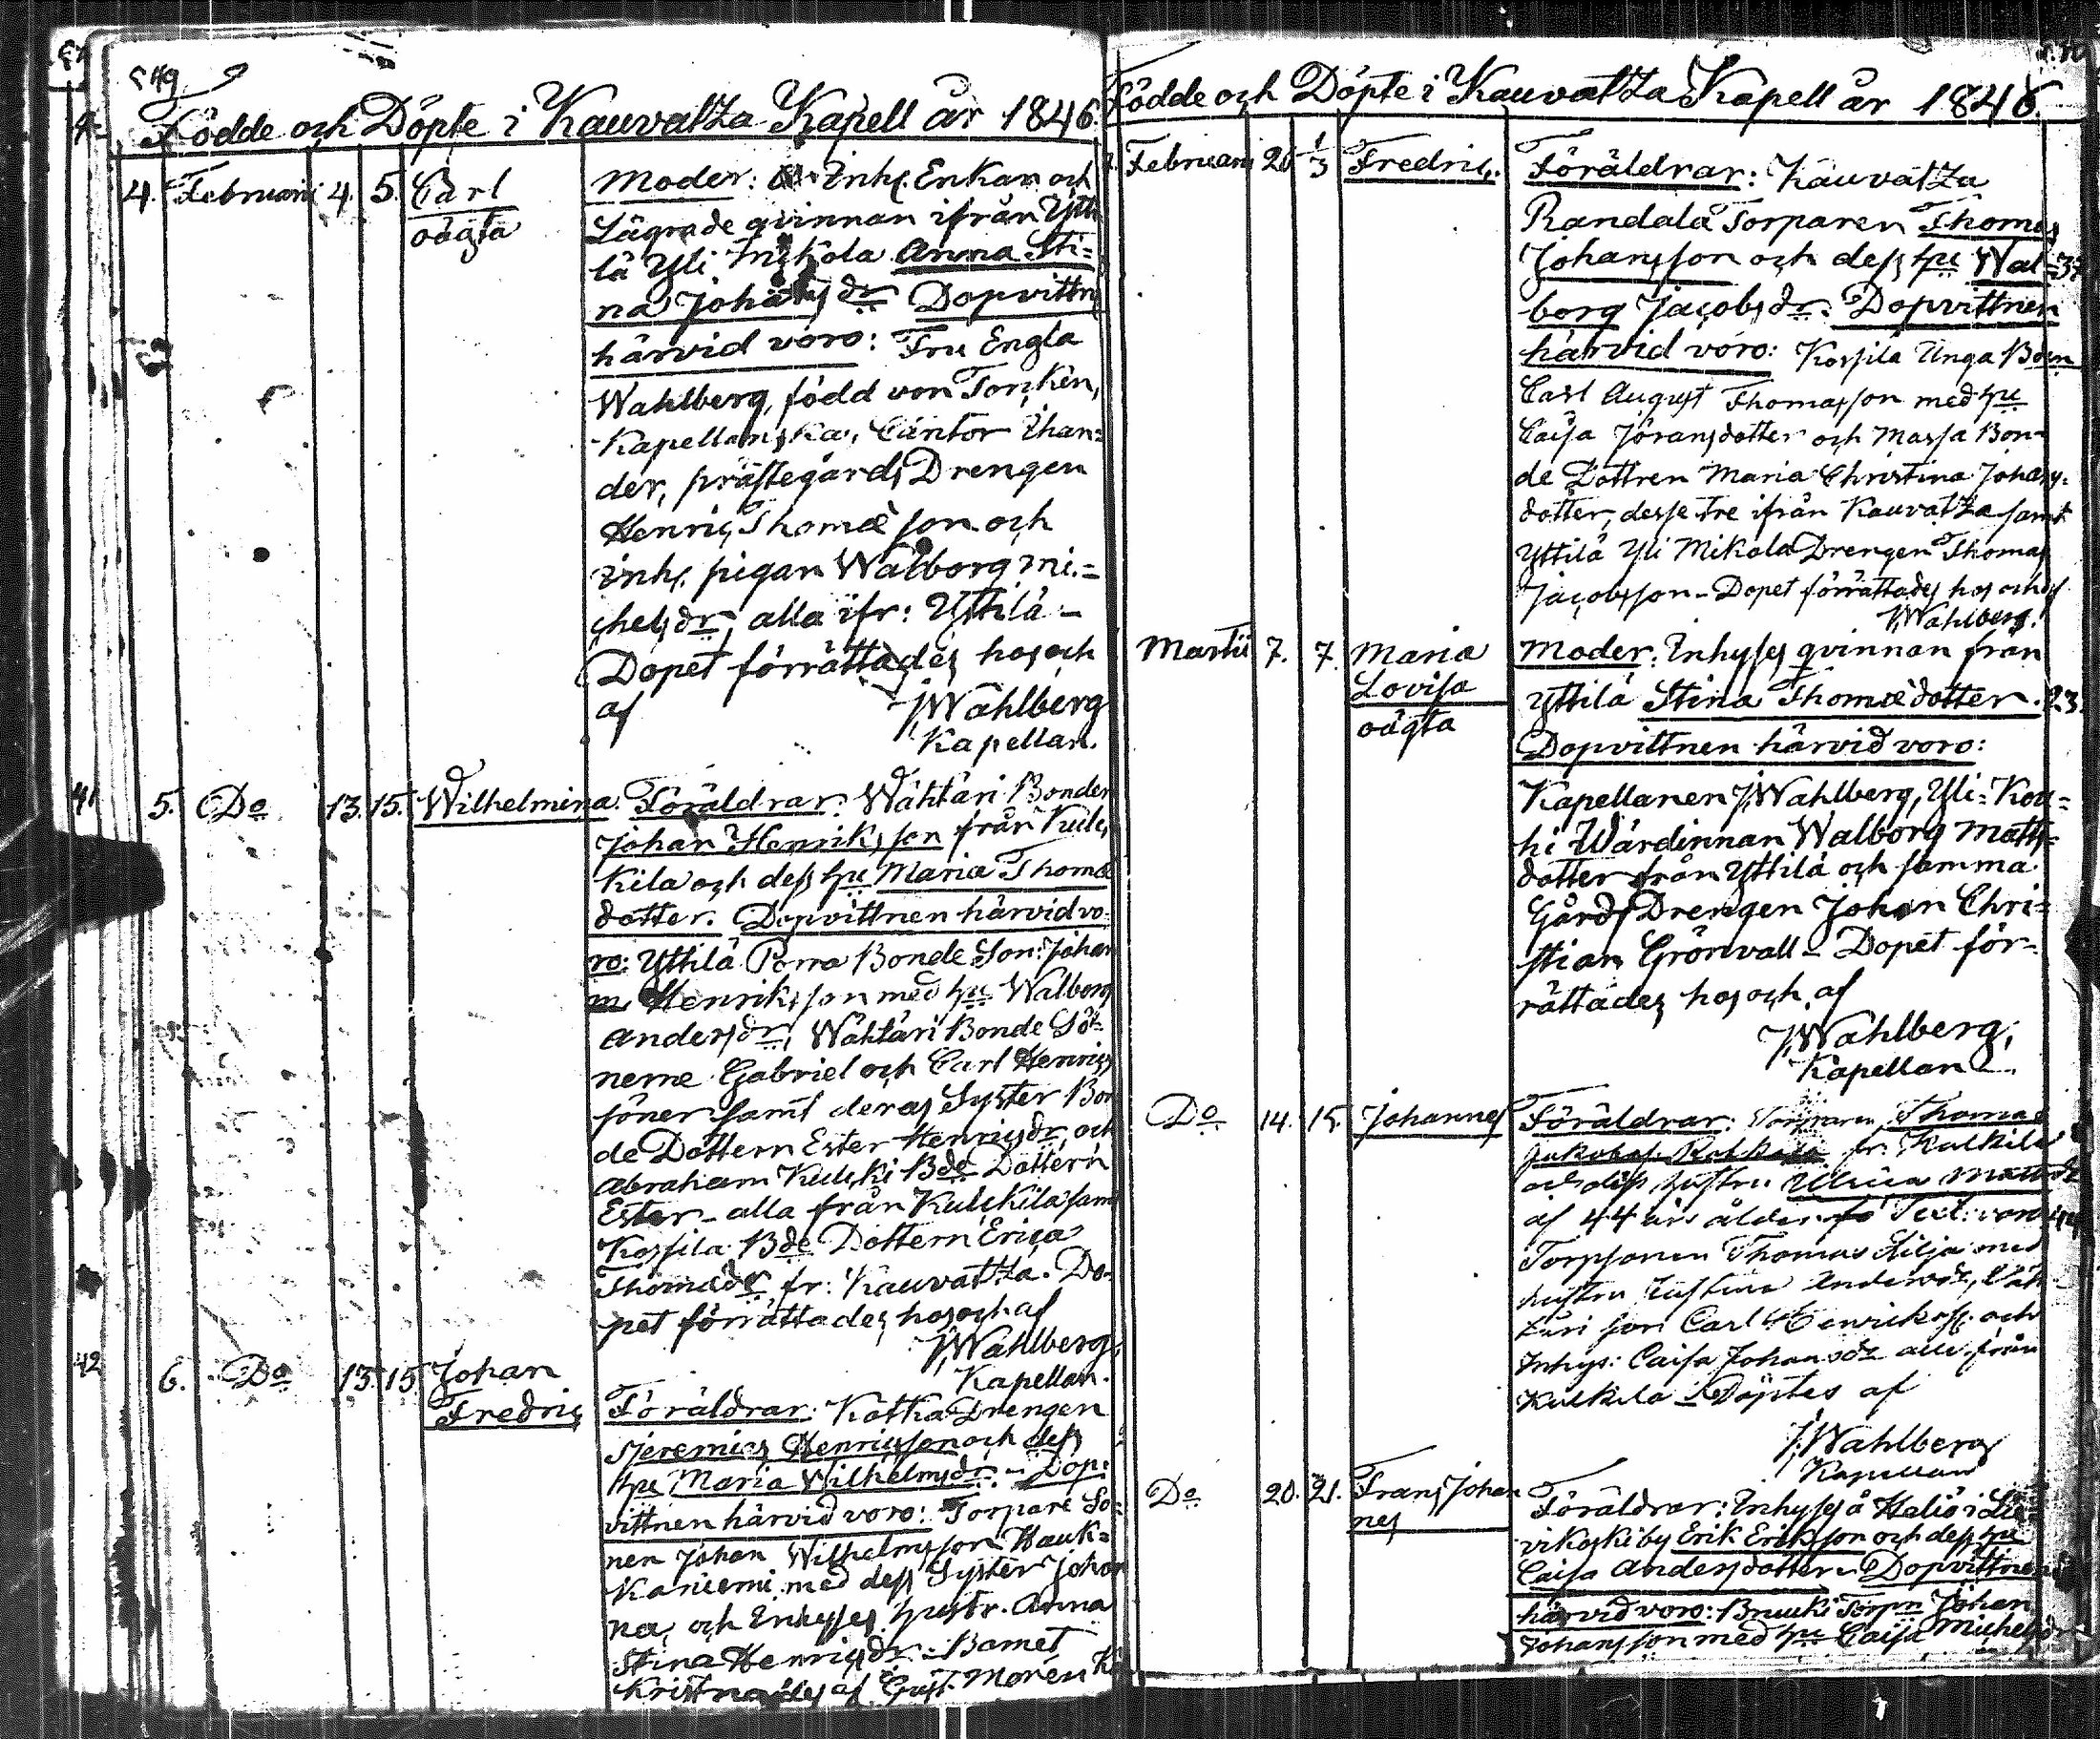 Födde och Döpte i Kauvatza Kapell år 1846.
4. Februarii 4. 5. Carl
oägta
Moder: Inhs. Enkan och
Lägrade qvinnan ifrån Ytti-
lä Yli Mikola Anna Sti-
na Johansdr Dopvittn
härvid voro: Fru Engla
Wahlberg, född von Torcken,
Kapellanska, Cantor Than-
der, prästegårds Drengen
Henric Thomæson och
Inhs. pigan Walborg Mi-
chelsdr, alla ifr: Yttilä -
Dopet förrättades hos och
af J. Wahlberg
Kapellan.
41 5. Do 13. 15. Wilhelmina.
Föräldrar: Wähtäri Bonden
Johan Henriksson från Kulc-
kila och dess hu Maria Thomæ
dotter. Dopvittnen härvid vo-
ro: Yttilä Porra Bonde Son: Johan
Henriksson med hu Walborg
Andersdr, Wähtäri Bonde Sö-
nerne Gabriel och Carl Henrics
söner samt deras Syster Bon
de Dottern Ester Henricsdr, och
Abraham Kulcki Bde Dottern
Ester - alla från Kulckila samt
Kossila Bde Dottern Erica
Thomædr fr: Kauvatza. Do-
pet förrättades hos och af
J. Wahlberg,
Kapellan.
42 6. Do 13. 15. Johan
Fredric
Föräldrar: Kotka Drengen
Jeremias Henricsson och dess
hu Maria Wilhelmsdr - Dop-
vittnen härvid voro: Torpare So-
nen Johan Wilhelmsson Hauk-
kaniemi med dess Syster Johan
na, och Inhyses hustr. Anna
Stina Henricsdr - Barnet
Kristnades af Gust. Morén
Födde och Döpte i Kauvatza Kapell år 1846.
Februarii 26 1/3 Fredric.
Föräldrar: Kauvatza
Randala Torparen Thomas
Johansson och dess hu Wal- 37
borg Jacobsdr. Dopvittnen
härvid voro: Kossila Unga Bonn
Carl August Thomasson med hu
Caisa Jöransdotter och Massa Bon-
de Dottren Maria Christina Johans-
dotter, desse tre ifrån Kauvatza samt
Yttilä Yli Mikola Drengen Thomas
Jacobsson - Dopet förrättades hos och af
J. Wahlberg.
Martii 7. 7. Maria
Lovisa
oägta
Moder: Inhyses qvinnan från
Yttilä Stina Thomædotter. 23.
Dopvittnen härvid voro:
Kapellanen J. Wahlberg, Yli-Kou-
hi Wärdinnan Walborg Matts-
dotter från Yttilä och samma
Gårds Drengen Johan Chri-
stian Grönvall - Dopet för-
rättades hos och af
J. Wahlberg,
Kapellan.
Do 14. 15. Johannes
Föräldrar: Torparen Thomas
fr. Kulkila
och dess hustru Ulrica Mattsdr
af 44 års ålder Test: voro 44
Torpparen Thomas Lilja med
hustru Justina Andersdr, Wäh-
täri son Carl Henriksss. och
Inhys: Caisa Johansdr alla från
Kulkila - Döptes af
J. Wahlberg
Kapellan
Do 20. 21. Frans Johan
nes
Föräldrar: Inhyses å Haliö i Lie-
vikoski by Erik Eriksson och dess hu
Caisa Andersdotter. Dopvittnen
härvid voro: Bruuki Torpn Johan
Johansson med hu Caisa Michelsdr